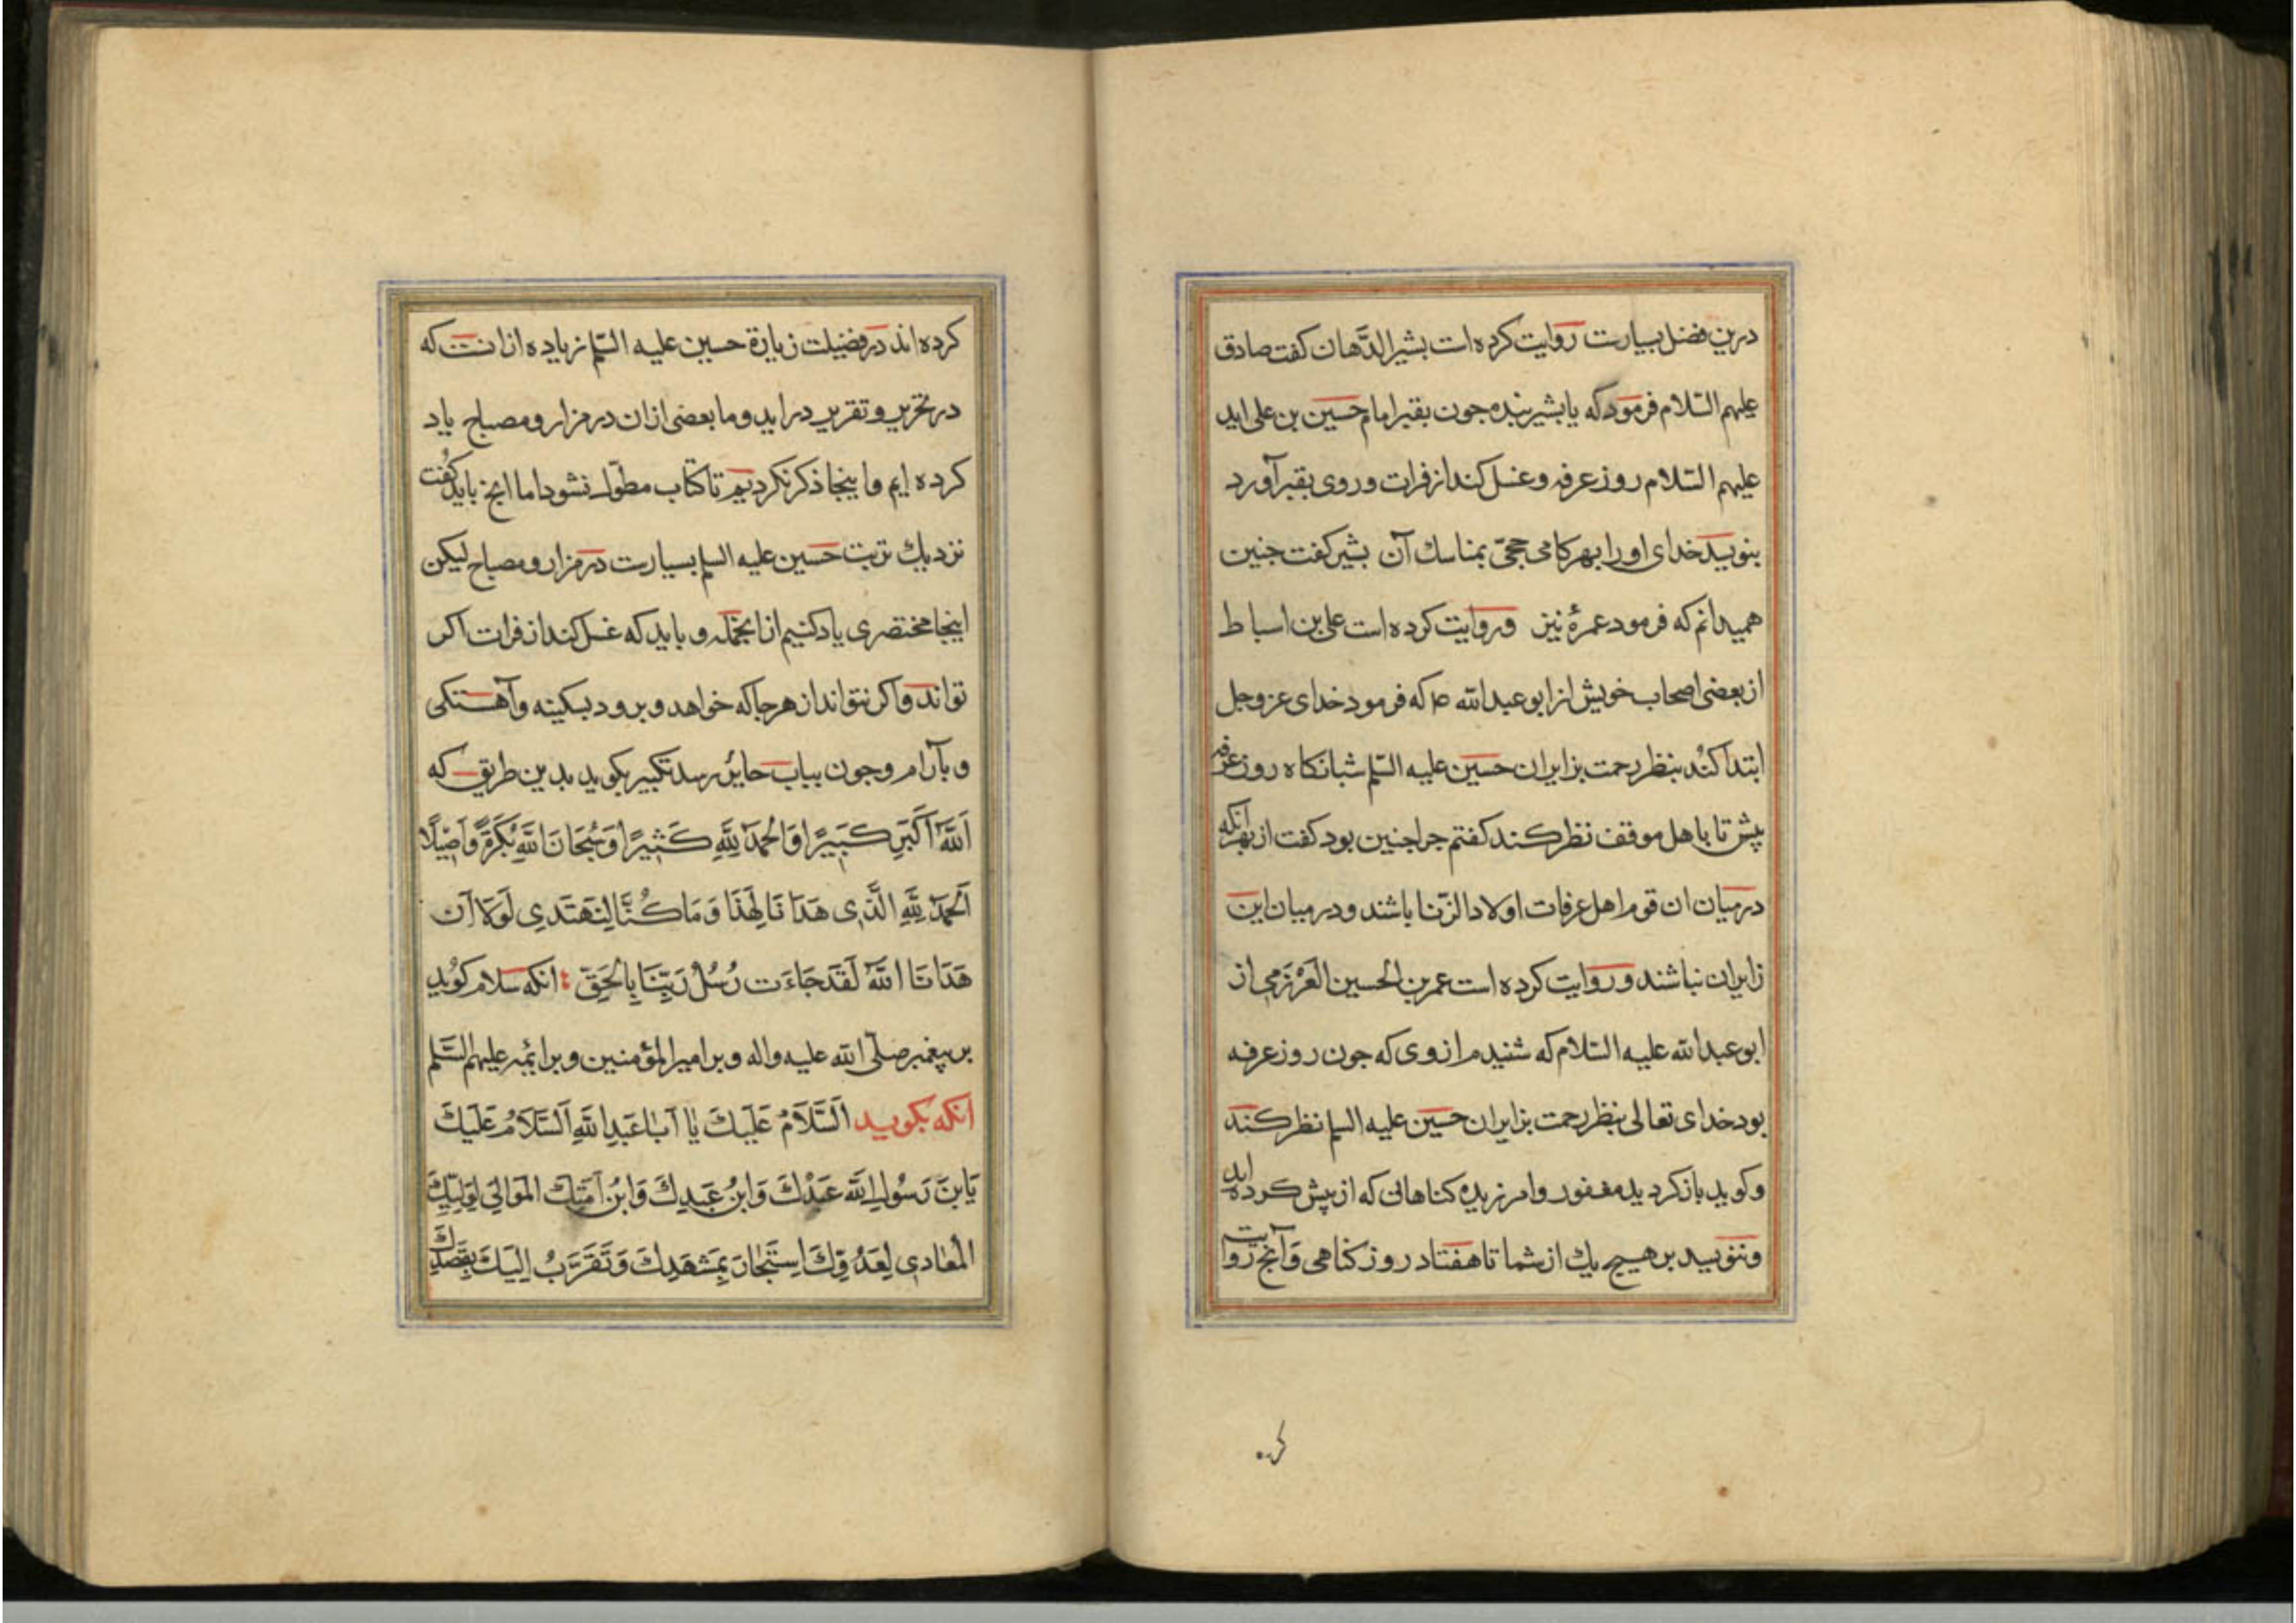 درین فضل بسیارست روایت کرده است بشیر الدّهان کفت صادق
علیهم السّلام فرمود که یا بشیر بنده جون بقبر امام حسین بن علی اید
علیهم السّلام روز عرفه و غسل کند از فرات و روی بقبر آورد
بنویسد خدای او را بهر کامی حجّی بمناسك آن بشیر کفت جنین
همیدانم که فرمود عمرهٔ نیز و روایت کرده است علی بن اسباط
از بعضی اصحاب خویش از ابو عبد الله ع که فرمود خدای عز و جل
ابتدا کند بنظر رحمت بزایران حسین علیه السّلم شبانکاه روز عرفه
پیش تا باهل موقف نظر کند کفتم جرا جنین بود کفت از بهر انکه
در میان ان قوم اهل عرفات اولاد الزّنا باشند و در میان این
زایران نباشند و روایت کرده است عمر بن الحسین العَرْزَمی از
ابو عبد الله علیه السّلام که شنیدم از وی که جون روز عرفه
بود خدای تعالی بنظر رحمت بزایران حسین علیه السلم نظر کند
و کوید باز کردید مغفور و امرزیده کناهانی که از پیش کرده اید
و ننویسد بر هیچ یك از شما تا هفتاد روز کناهی وَ آنج روایت
کر..
کرده اند در فضیلت زیارة حسین علیه السّلم زیاده از انست که
در تحریر و تقریر در اید و ما بعضی از ان در مزار و مصباح یاد
کرده ایم و اینجا ذکر نکردیم تا کتاب مطوّل نشود اما انج باید کفت
نزدیك تربت حسین علیه السلم بسیارست در مزار و مصباح لیکن
اینجا مختصری یاد کنیم از انجمله و باید که غسل کند از فرات اکر
تواند و اکر نتواند از هر جا که خواهد و برود بسکینه و آهستکی
و بآرام و جون بباب حایر رسد تکبیر بکوید بدین طریق که
اَللّٰهُ اَکْبَرُ کَبیرًا وَالْحَمْدُ لِلّٰهِ کَثیرًا وَسُبْحَانَ اللّٰهِ بُکْرَةً وَاَصیلًا
اَلْحَمْدُ لِلّٰهِ الَّذی هَدَانَا لِهٰذَا وَمَا کُنَّا لِنَهْتَدِیَ لَوْلَا اَنْ
هَدَانَا اللّٰهُ لَقَدْ جَاءَتْ رُسُلُ رَبِّنَا بِالْحَقِّ انکه سلام کوید
بر پیغمبر صلّی الله علیه و اله و بر امیر المؤمنین و بر ائمه علیهم السَّلم
انکه بکوید اَلسَّلَامُ عَلَیْكَ یَا اَبَا عَبْدِ اللّٰهِ اَلسَّلَامُ عَلَیْكَ
یَابْنَ رَسُولِ اللّٰهِ عَبْدُكَ وَابْنُ عَبْدِكَ وَابْنُ اَمَتِكَ الْمُوَالِی لِوَلِیِّكَ
الْمُعَادی لِعَدُوِّكَ اِسْتَجَارَ بِمَشْهَدِكَ وَتَقَرَّبَ اِلَیْكَ بِقَصْدِكَ